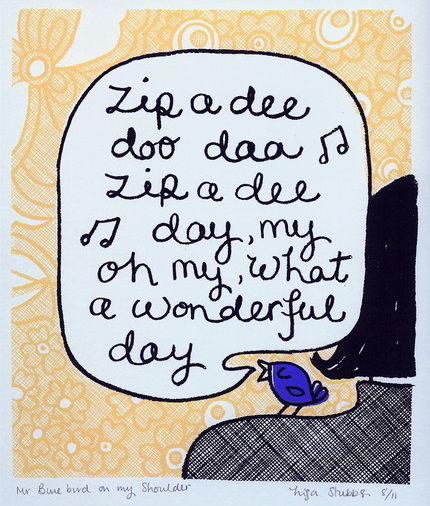 Zip a dee
doo daa
Zip a dee
day, my
oh my, what
a wonderful
day
Mr Blue bird on my Shoulder
Stubbs. 5/11